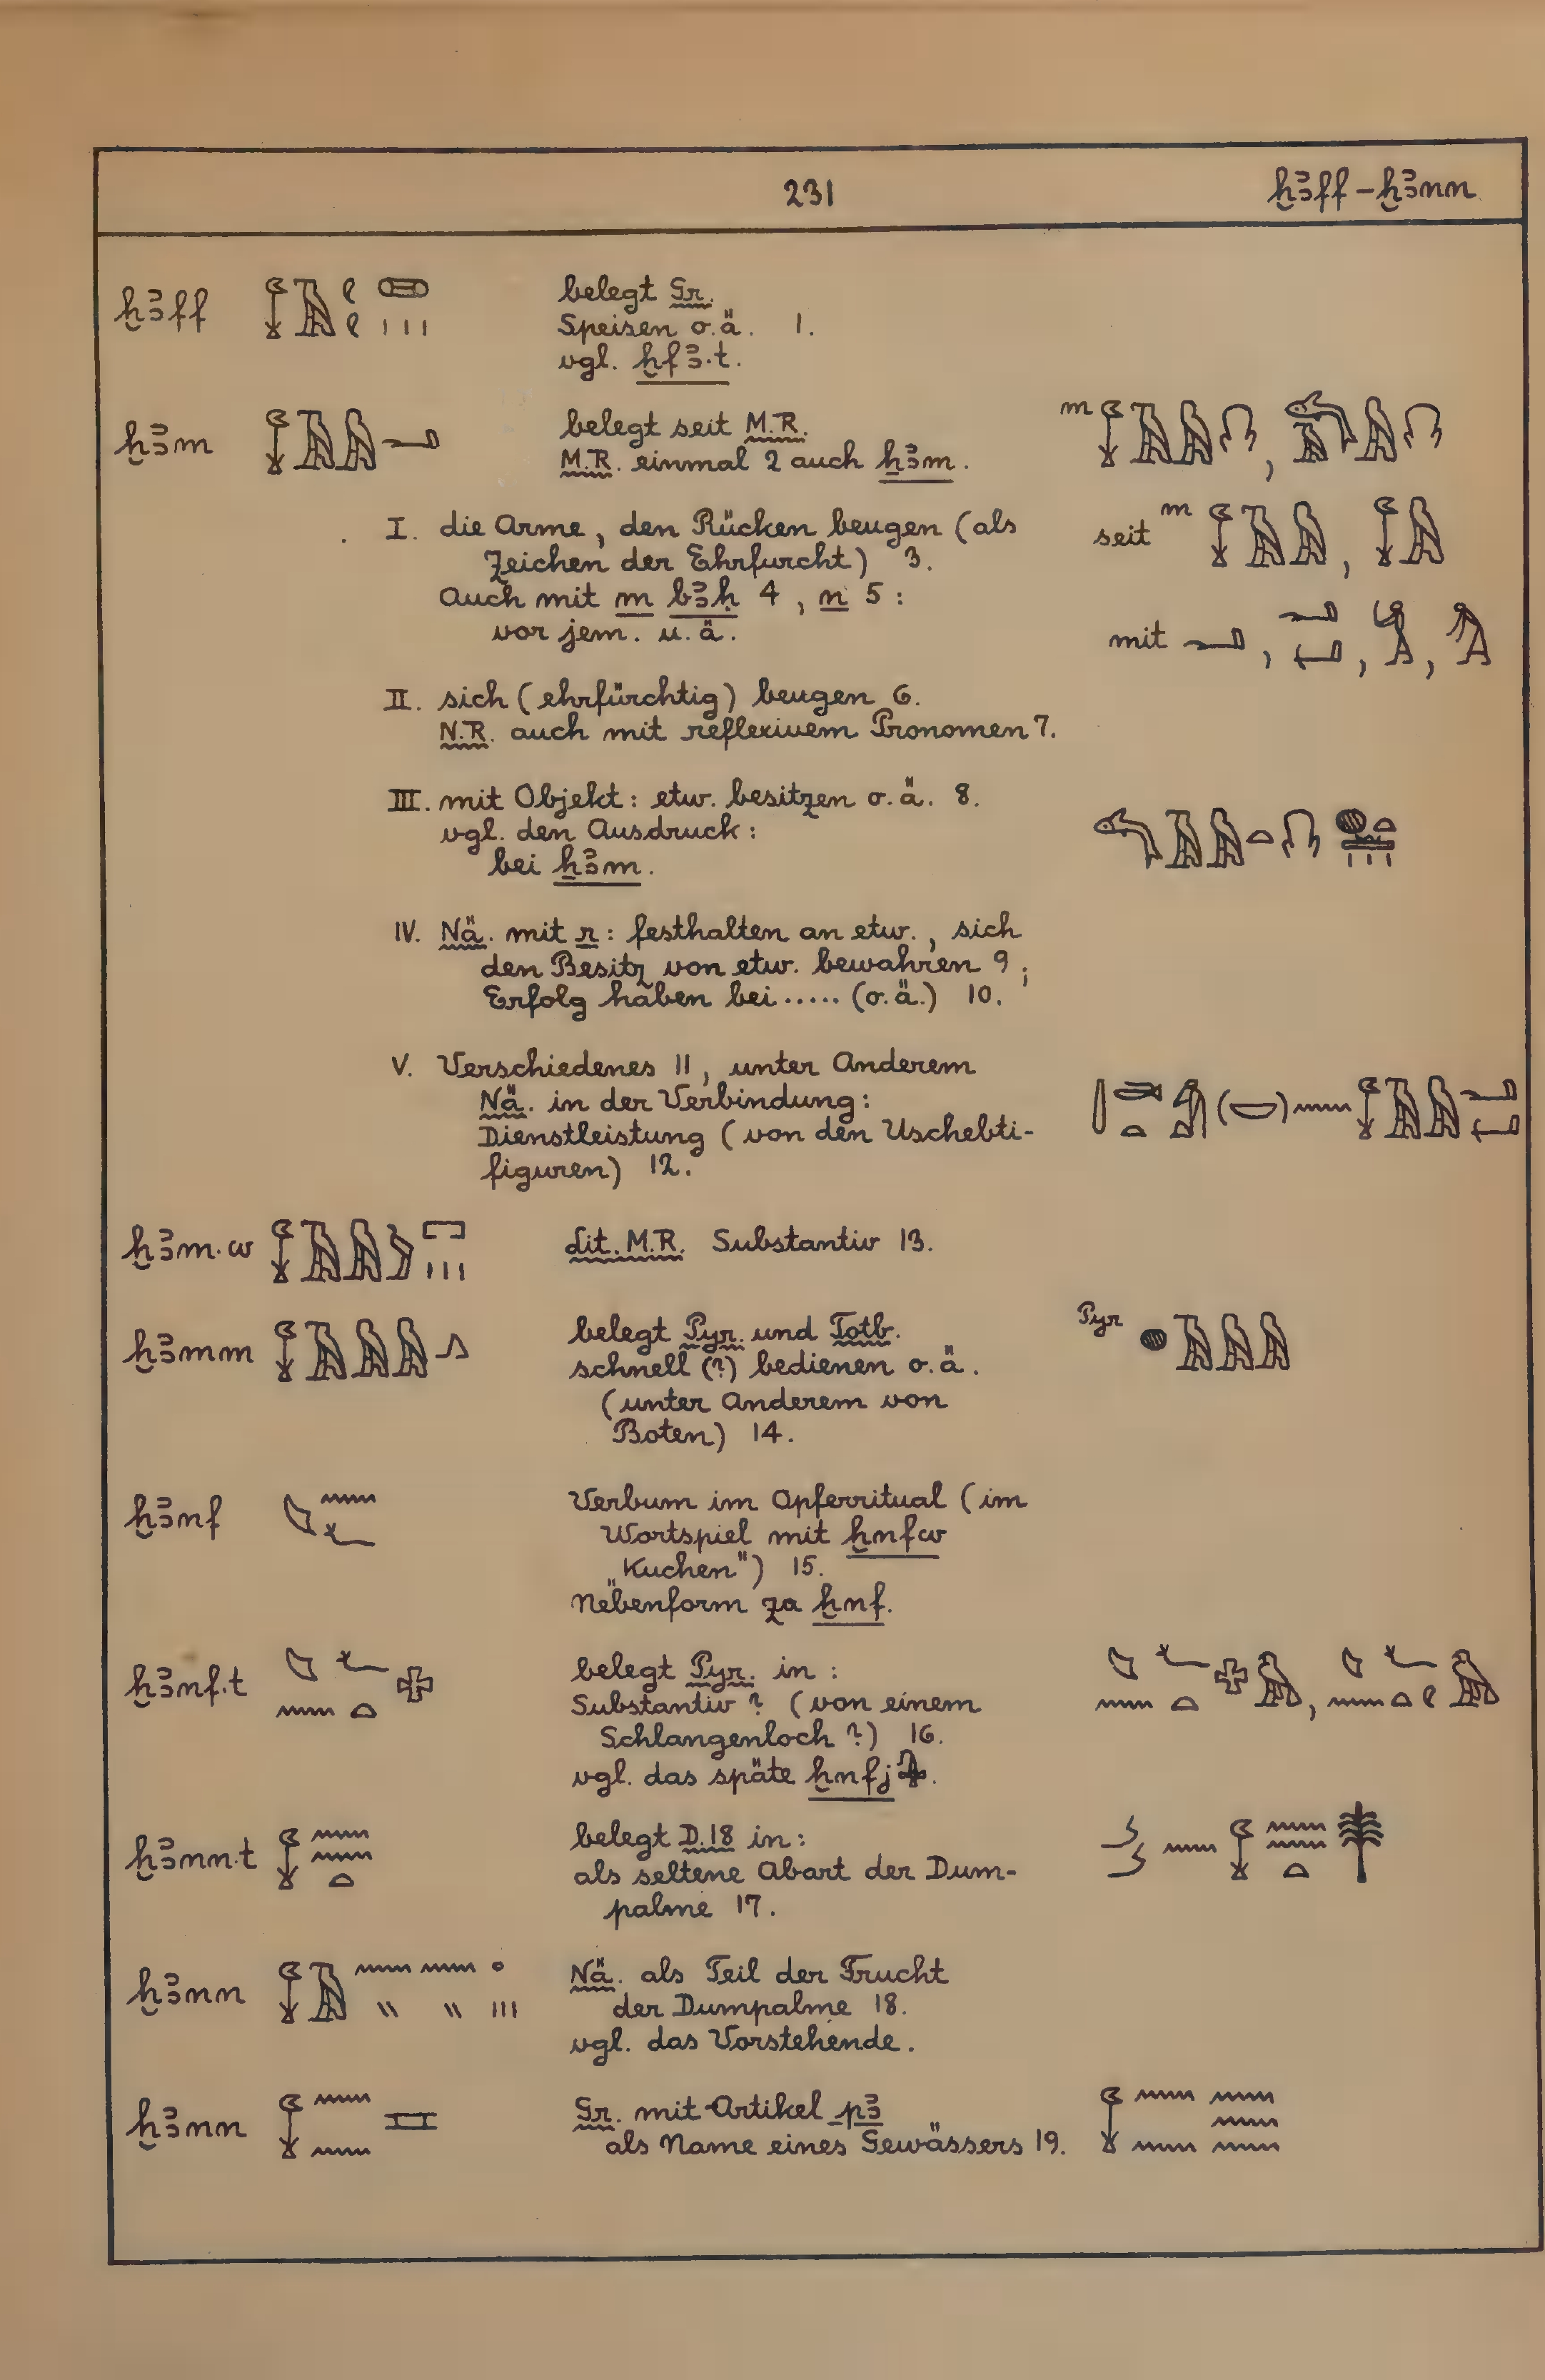 231
ḫꜣff – ḫꜣnn
ḫꜣff
belegt Gr.
Speisen o.ä. 1.
vgl. ḫfꜣ.t.
ḫꜣm
belegt seit M.R. m ,
M.R. einmal 2 auch ẖꜣm.
I. die Arme, den Rücken beugen (als seit m ,
Zeichen der Ehrfurcht) 3.
Auch mit m bꜣḥ 4, n 5:
vor jem. u.ä. mit , , ,
II. sich (ehrfürchtig) beugen 6.
N.R. auch mit reflexivem Pronomen 7.
III. mit Objekt: etw. besitzen o.ä. 8.
vgl. den Ausdruck:
bei ẖꜣm.
IV. Nä. mit r: festhalten an etw., sich
den Besitz von etw. bewahren 9;
Erfolg haben bei ..... (o.ä.) 10.
V. Verschiedenes 11, unter Anderem
Nä. in der Verbindung:
Dienstleistung (von den Uschebti-
figuren) 12.
ḫꜣm.w
Lit. M.R. Substantiv 13.
ḫꜣmm
belegt Pyr. und Totb. Pyr
schnell (?) bedienen o.ä.
(unter Anderem von
Boten) 14.
ḫꜣnf
Verbum im Opferritual (im
Wortspiel mit ḫnfw
„Kuchen") 15.
Nebenform za ḫnf.
ḫꜣnf.t
belegt Pyr. in:
Substantiv? (von einem
Schlangenloch?) 16.
vgl. das späte ḫnfj .
ḫꜣnn.t
belegt D.18 in:
als seltene Abart der Dum-
palme 17.
ḫꜣnn
Nä. als Teil der Frucht
der Dumpalme 18.
vgl. das Vorstehende.
ḫꜣnn
Gr. mit Artikel pꜣ
als Name eines Gewässers 19.